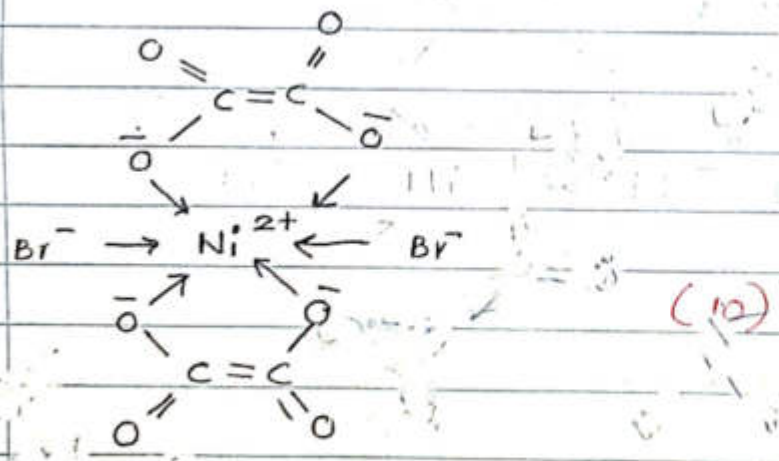 O O
C = C
O⁻ O⁻
Br⁻ → Ni²⁺ ← Br⁻
(10)
O⁻ O⁻
C = C
O O